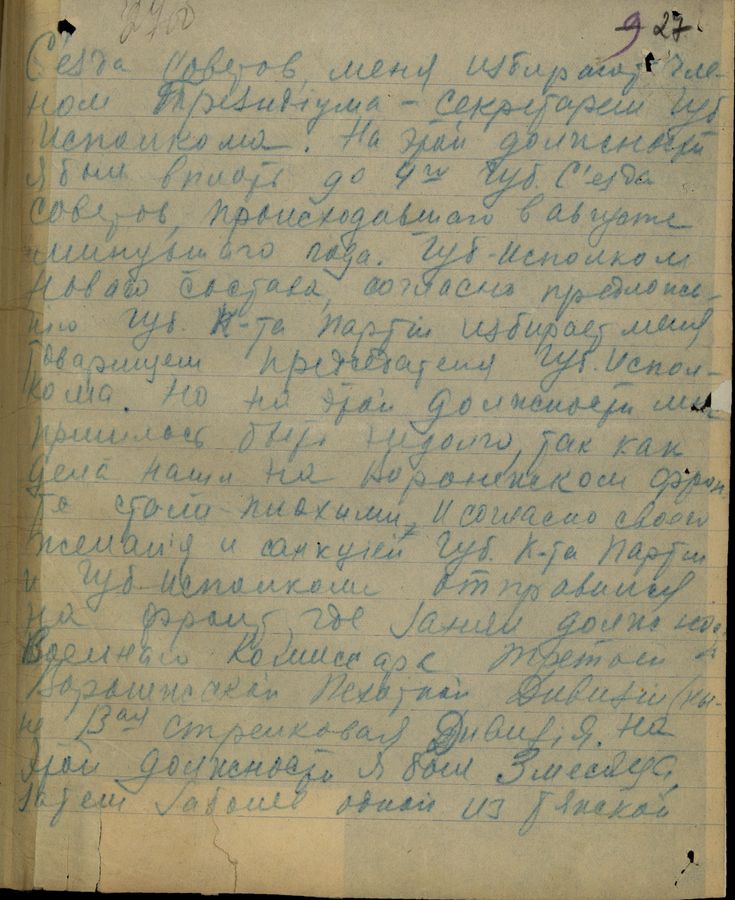 2700
9 27
С'езда Советов, меня избирают чле-
ном Президіума – секретарем Губ
Исполкома. На этой должности
я был вплоть до 4го Губ. С'езда
Советов, происходавшаго в августе
минувшаго года. Губ-Исполком
Новаго состава, согласно предложе-
нію Губ. К-та Партіи избирает меня
товарищем председателя Губ. Испол-
кома. Но на этой должности мне
пришлось быть недолго, так как
дела наши на Воронежском фрон
те стали плохими, и согласно своего
желанія и санкціей Губ. К-та Партіи
и Губ-Исполкома отправился
на фронт, где занял должность
Военнаго Комиссара третьей
Воронежской Пехотной Дивизіи (ны-
не 13ая стрелковая Дивизія. На
этой должности я был 3 месяца,
затем одной из